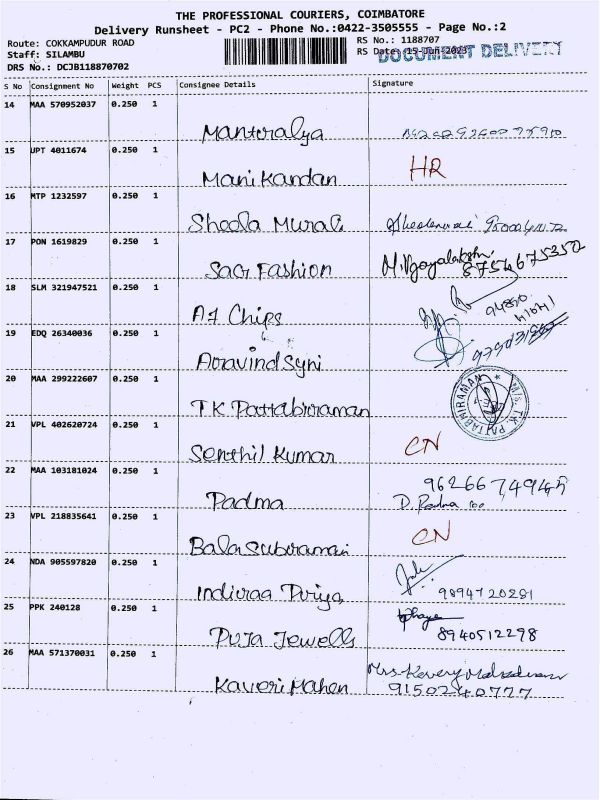 THE PROFESSIONAL COURIERS, COIMBATORE
Delivery Runsheet - PC2 - Phone No.:0422-3505555 - Page No.:2
Route: COKKAMPUDUR ROAD RS No.: 1188707
Staff: SILAMBU RS Date: 15-Jun-2023 DOCUMENT DELIVERY
DRS No.: DCJB118870702
S No Consignment No Weight PCS Consignee Details Signature
14 MAA 570952037 0.250 1
Mantoralya
15 UPT 4011674 0.250 1
Mani Kandan HR
16 MTP 1232597 0.250 1
Sheela Murali
17 PON 1619829 0.250 1
SaGi Fashion M. Vijayalakshmi 8754675352
18 SLM 321947521 0.250 1
A1 Chips 94890 14214
19 EDQ 26340036 0.250 1
Aravind Syni
20 MAA 299222607 0.250 1
T.K. Pattabiraman M/S. T.K. PATTABHIRAMAN
21 VPL 402620724 0.250 1
Senthil Kumar CN
22 MAA 103181024 0.250 1
Padma 9626674945 D. Padma
23 VPL 218835641 0.250 1
Balasubramani CN
24 NDA 905597820 0.250 1
Indiraa Priya 9894720281
25 PPK 240128 0.250 1
Puja Jewells 8940512298
26 MAA 571370031 0.250 1
Kaveri Mahen Mrs. Kavery Mahadevan 9150240777